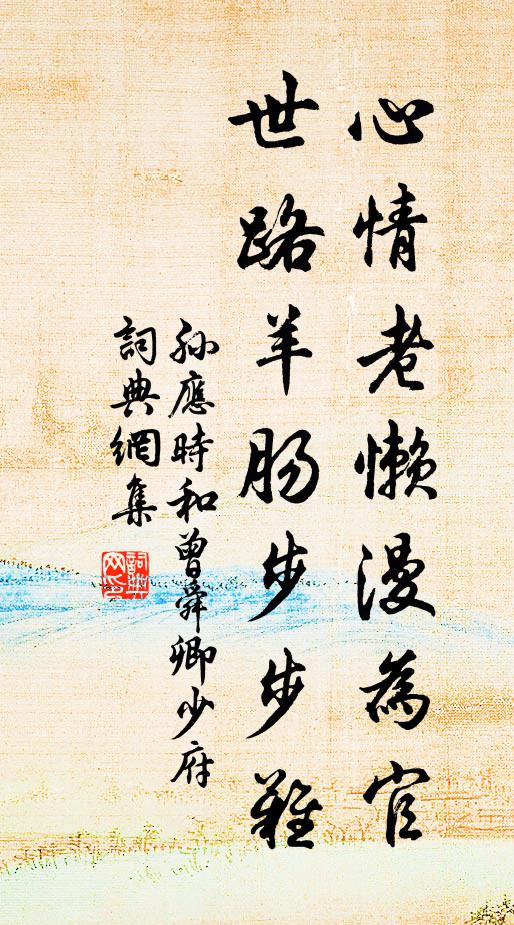 心情老懒漫為官
世路羊肠步步難
孫應時和曾舜卿少府
詞典網集